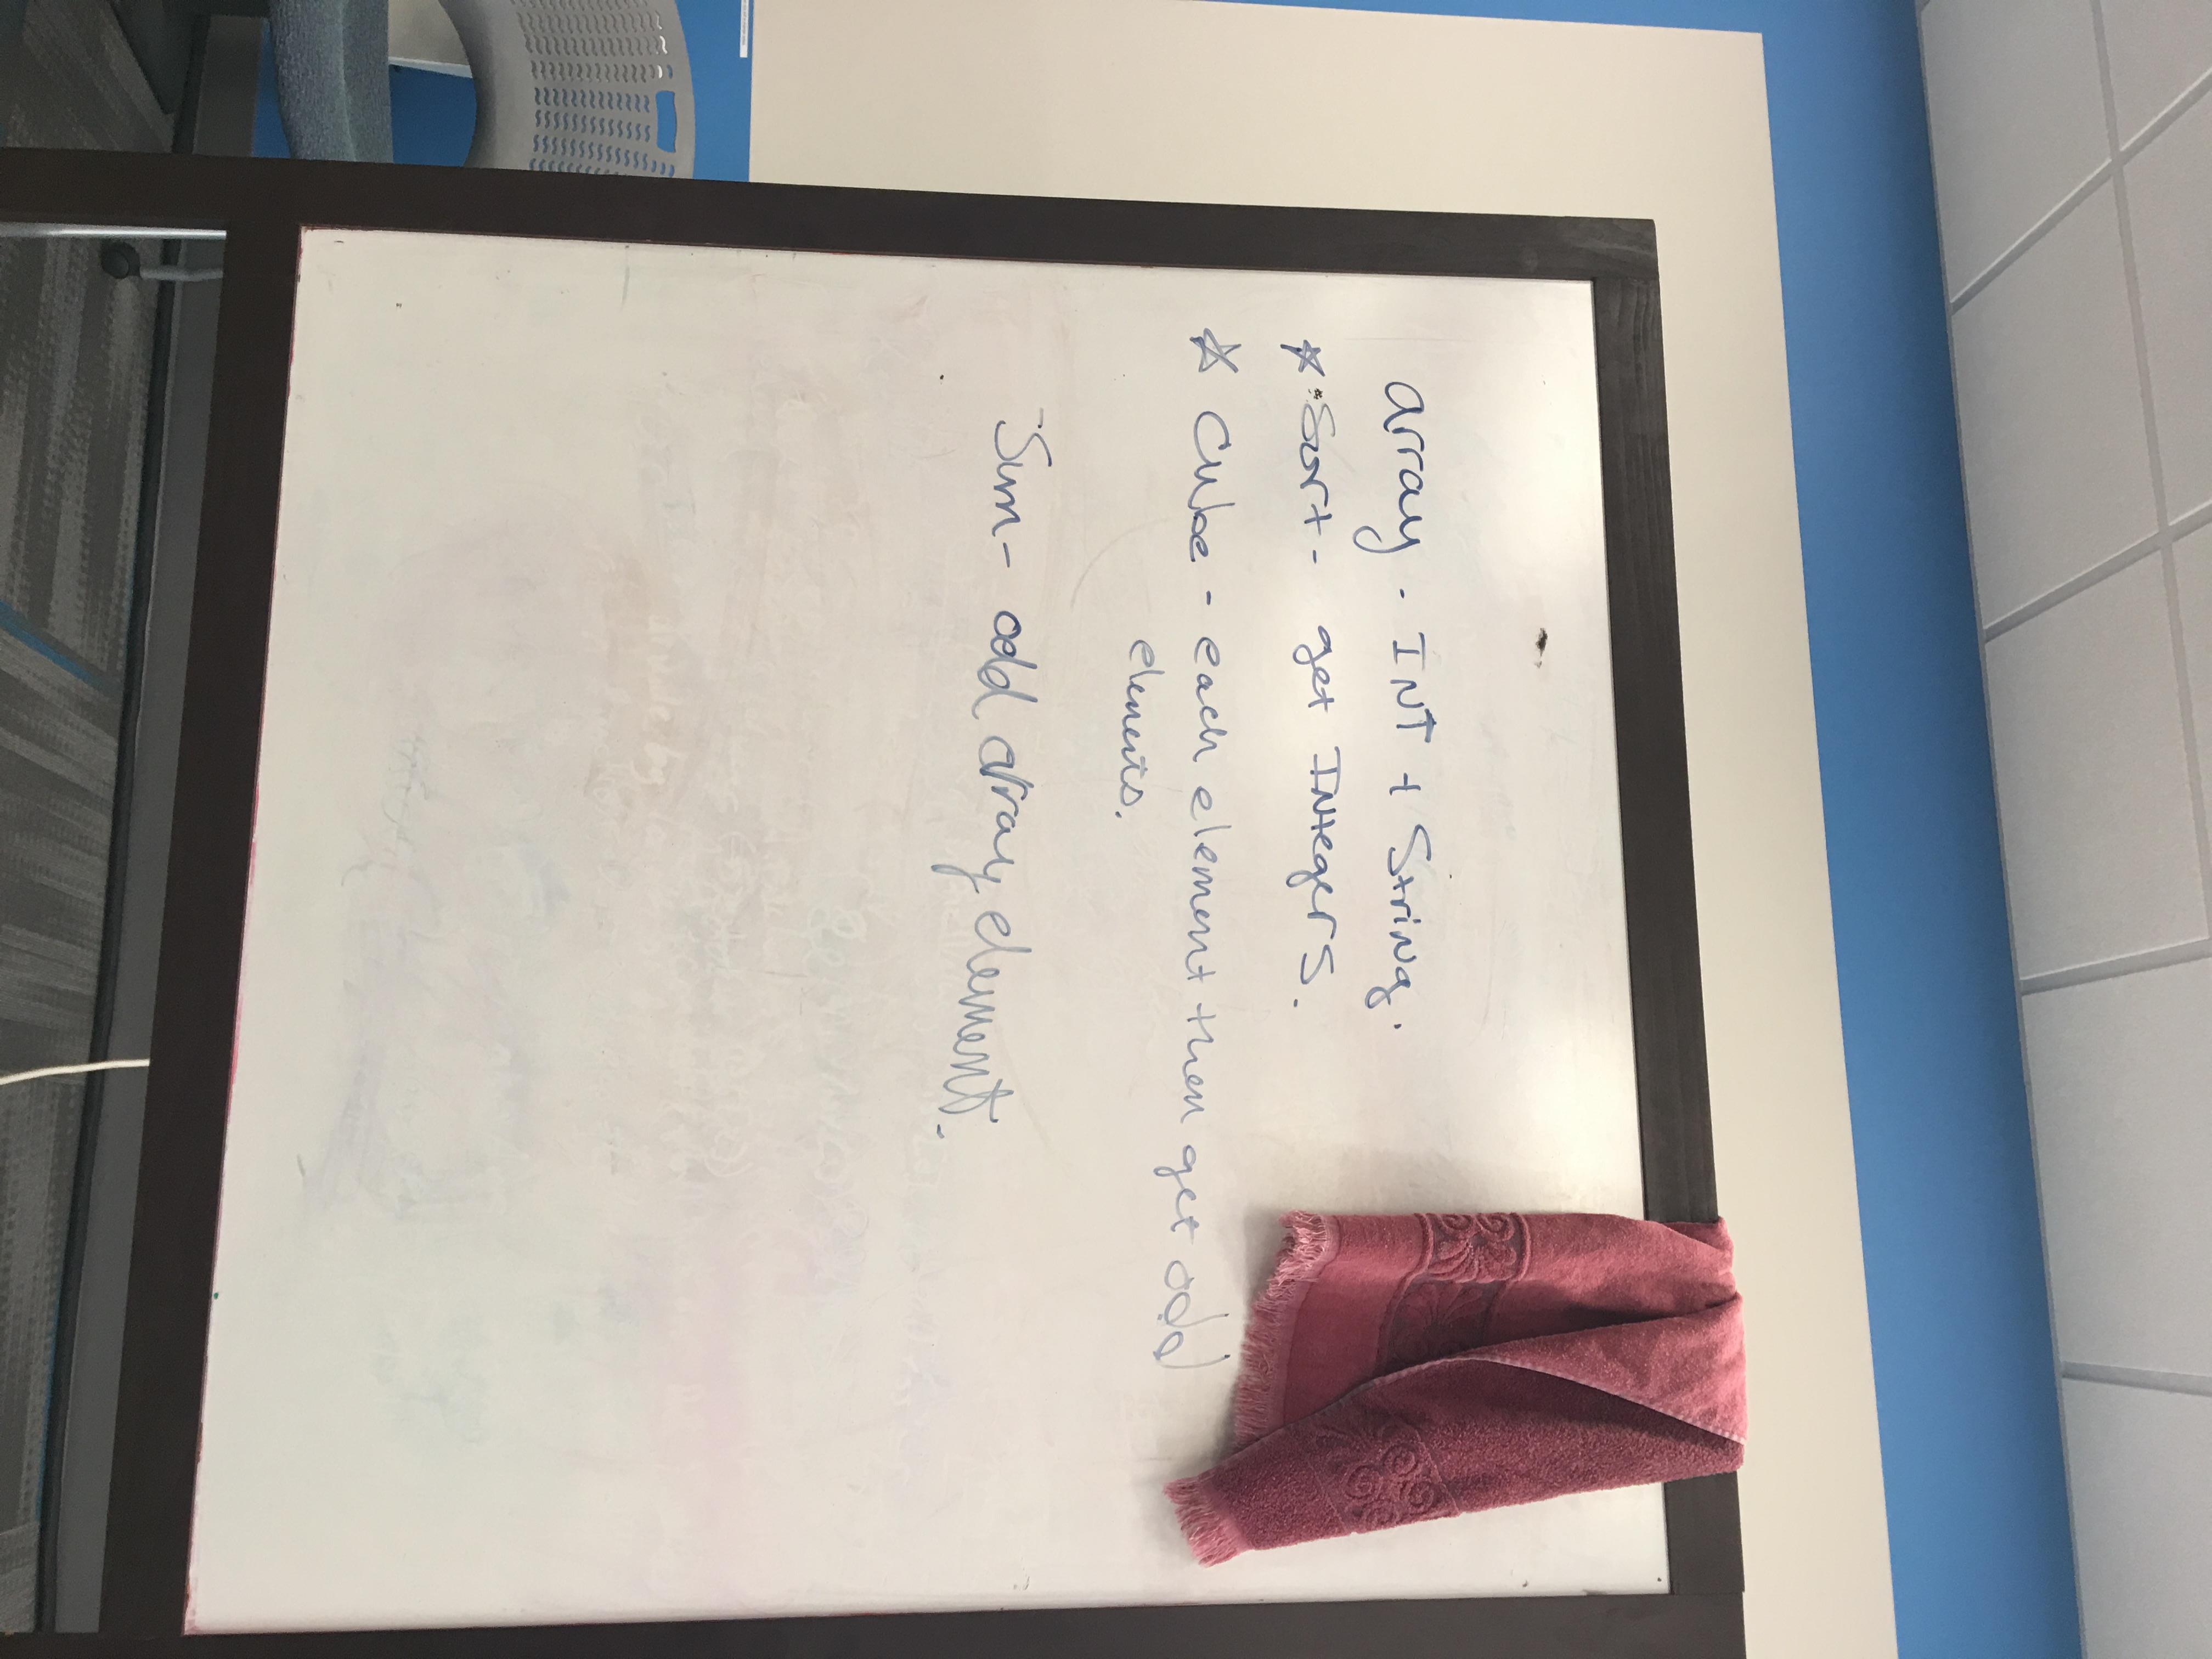 array - INT + String.
☆ Sort - get INtegers.
☆ Cube - each element then get odd
elements.
Sum - odd array element.